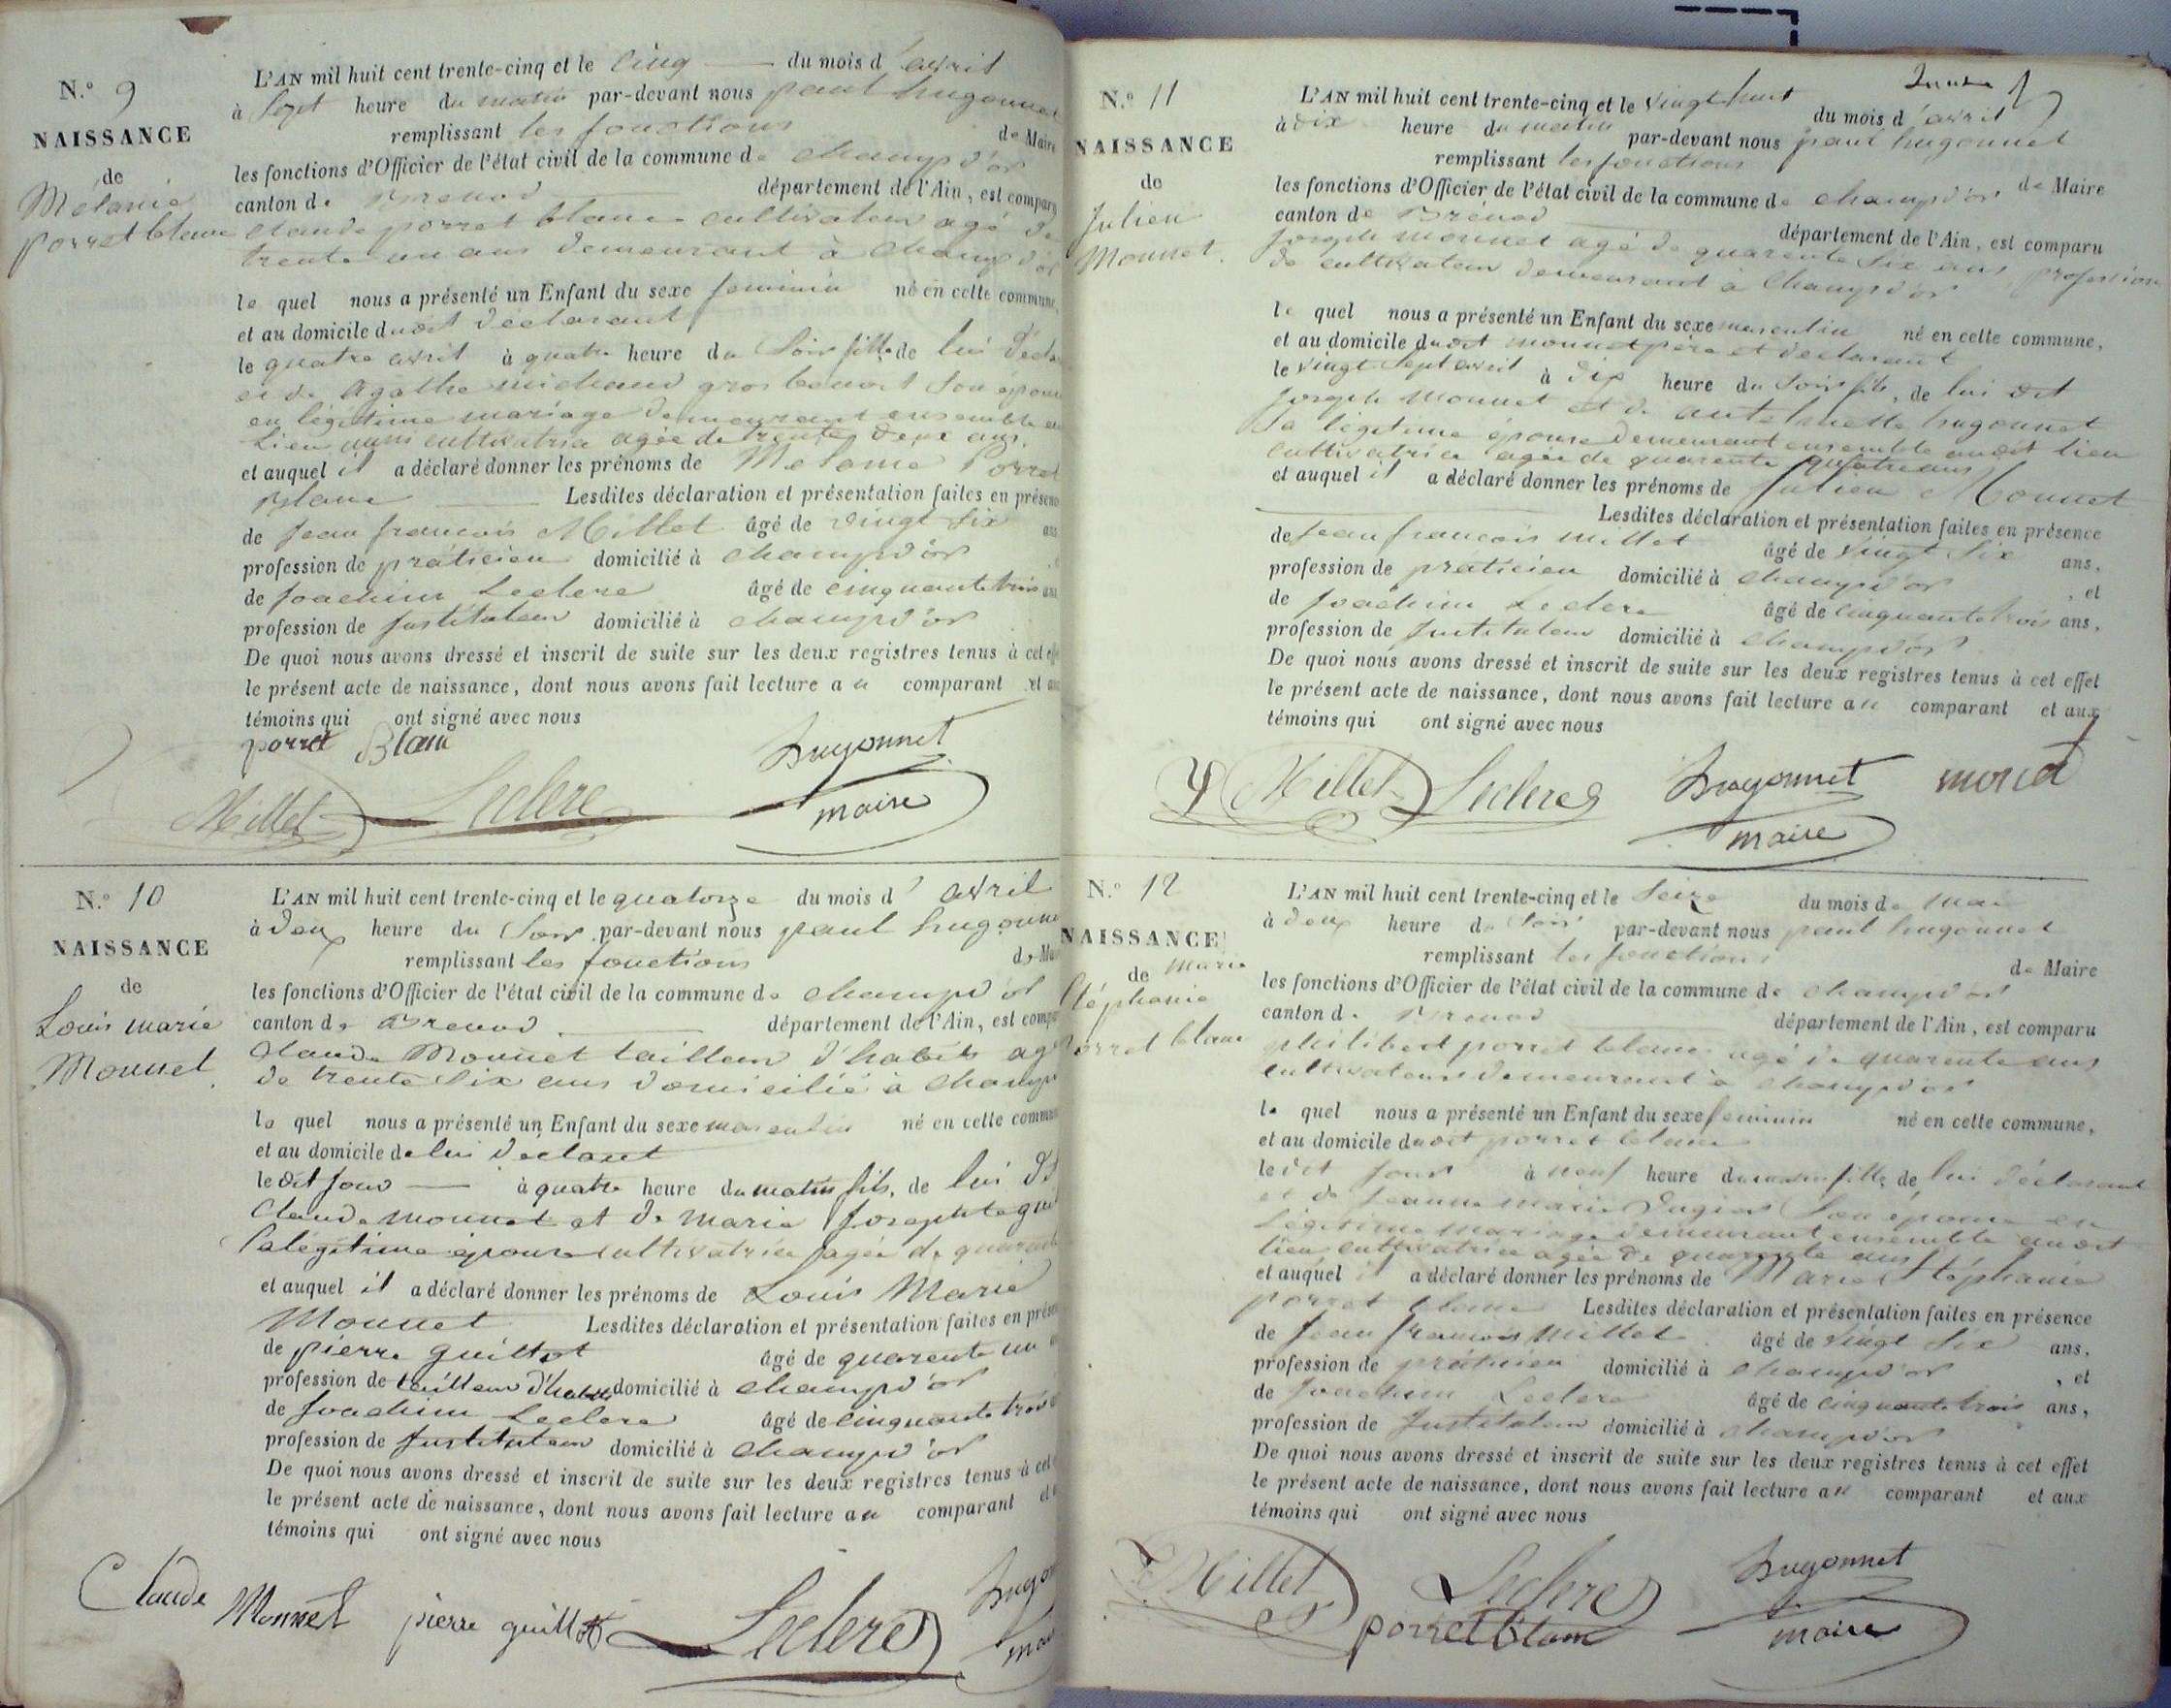 N.º 9
NAISSANCE
de
Mélanie
porret blanc
L'AN mil huit cent trente-cinq et le cinq du mois d'avril
à Sept heure du matin par-devant nous paul hugonnet
remplissant les fonctions de Maire
les fonctions d'Officier de l'état civil de la commune de champd'or
canton de Brenod département de l'Ain, est comparu
claude porret blanc cultivateur agé de
trente un ans demeurant à champd'or
le quel nous a présenté un Enfant du sexe feminin né en cette commune,
et au domicile dudit déclarant
le quatre avril à quatre heure du Soir fille de lui décla
et de agathe michaud gros benoit son épouse
en légitime mariage demeurant ensemble au
lieu aussi cultivatrice agée de trente deux ans.
et auquel il a déclaré donner les prénoms de Melanie Porret
Blanc Lesdites déclaration et présentation faites en présence
de Jean francois Millet âgé de vingt six ans
profession de práticien domicilié à champd'or
de Joachim Leclerc âgé de cinquante trois ans
profession de Instituteur domicilié à champd'or
De quoi nous avons dressé et inscrit de suite sur les deux registres tenus à cet effe
le présent acte de naissance, dont nous avons fait lecture au comparant et au
témoins qui ont signé avec nous
porret Blanc
Hugonnet
Millet Leclerc maire
N.º 10
NAISSANCE
de
Louis marie
Monnet
L'AN mil huit cent trente-cinq et le quatorze du mois d'avril
à deux heure du Soir par-devant nous paul hugonne
remplissant les fonctions de Mai
les fonctions d'Officier de l'état civil de la commune de champd'or
canton de Brenod département de l'Ain, est compa
Claude Monnet tailleur d'habits ag
de trente Six ans domicilié à champ
le quel nous a présenté un Enfant du sexe masculin né en cette commu
et au domicile de lui déclarant
le dit jour à quatre heure du matin fils, de lui dit
Claude monnet et de marie Josephte gui
Sa légitime épouse cultivatrice agée de quarante
et auquel il a déclaré donner les prénoms de Louis Marie
Monnet Lesdites déclaration et présentation faites en prése
de pierre guillot âgé de quarente un
profession de tailleur d'habits domicilié à champd'or
de Joachim Leclerc âgé de cinquante trois
profession de Instituteur domicilié à champd'or
De quoi nous avons dressé et inscrit de suite sur les deux registres tenus à cet
le présent acte de naissance, dont nous avons fait lecture au comparant et
témoins qui ont signé avec nous
Claude Monnet pierre guillot Leclerc Hugon
mai
N.º 11
NAISSANCE
de
Julien
Monnet.
L'AN mil huit cent trente-cinq et le vingt huit du mois d'avril
à dix heure du matin par-devant nous paul hugonnet
remplissant les fonctions de Maire
les fonctions d'Officier de l'état civil de la commune de champd'or
canton de Brénod département de l'Ain, est comparu
Joseph monnet agé de quarente Six ans profession
de cultivateur demeurant à Champd'or
le quel nous a présenté un Enfant du sexe masculin né en cette commune,
et au domicile dudit monnet père et declarant
le vingt Sept avril à dix heure du Soir fils, de lui dit
Joseph Monnet et de hugonnet
Sa légitime épouse demeurant ensemble audit lieu
cultivatrice agée de quarente quatre ans
et auquel il a déclaré donner les prénoms de Julien Monnet
Lesdites déclaration et présentation faites en présence
de Jean francois millet âgé de vingt Six ans,
profession de práticien domicilié à champd'or, et
de Joachim Leclerc âgé de cinquante trois ans,
profession de Instituteur domicilié à champd'or
De quoi nous avons dressé et inscrit de suite sur les deux registres tenus à cet effet
le présent acte de naissance, dont nous avons fait lecture au comparant et aux
témoins qui ont signé avec nous
Millet Leclerc Hugonnet
maire
N.º 12
NAISSANCE
de marie
Stéphanie
porret blanc
L'AN mil huit cent trente-cinq et le Seize du mois de mai
à deux heure du Soir par-devant nous paul hugonnet
remplissant les fonctions de Maire
les fonctions d'Officier de l'état civil de la commune de champd'or
canton de Brenod département de l'Ain, est comparu
philibert porret blanc agé de quarente ans
cultivateur demeurant à champd'or
le quel nous a présenté un Enfant du sexe feminin né en cette commune,
et au domicile dudit porret blanc
le dit jour à neuf heure du matin fille, de lui déclarant
et de Jeanne marie Son épouse en
légitime mariage demeurant ensemble audit
lieu cultivatrice agée de quarente ans
et auquel il a déclaré donner les prénoms de Marie Stéphanie
porret blanc Lesdites déclaration et présentation faites en présence
de Jean francois Millet âgé de vingt Six ans,
profession de práticien domicilié à champd'or, et
de Joachim Leclerc âgé de cinquante trois ans,
profession de Instituteur domicilié à champd'or
De quoi nous avons dressé et inscrit de suite sur les deux registres tenus à cet effet
le présent acte de naissance, dont nous avons fait lecture au comparant et aux
témoins qui ont signé avec nous
Millet Leclerc Hugonnet
porret blanc maire